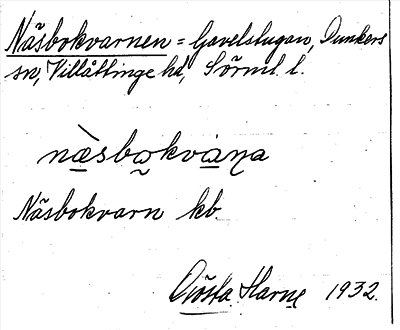 Näsbokvarnen = Gavelstugan, Dunkers
sn, Villåttinge hd, Sörml. l.
nàsbokvána
Näsbokvarn kb.
Gösta Harne 1932.